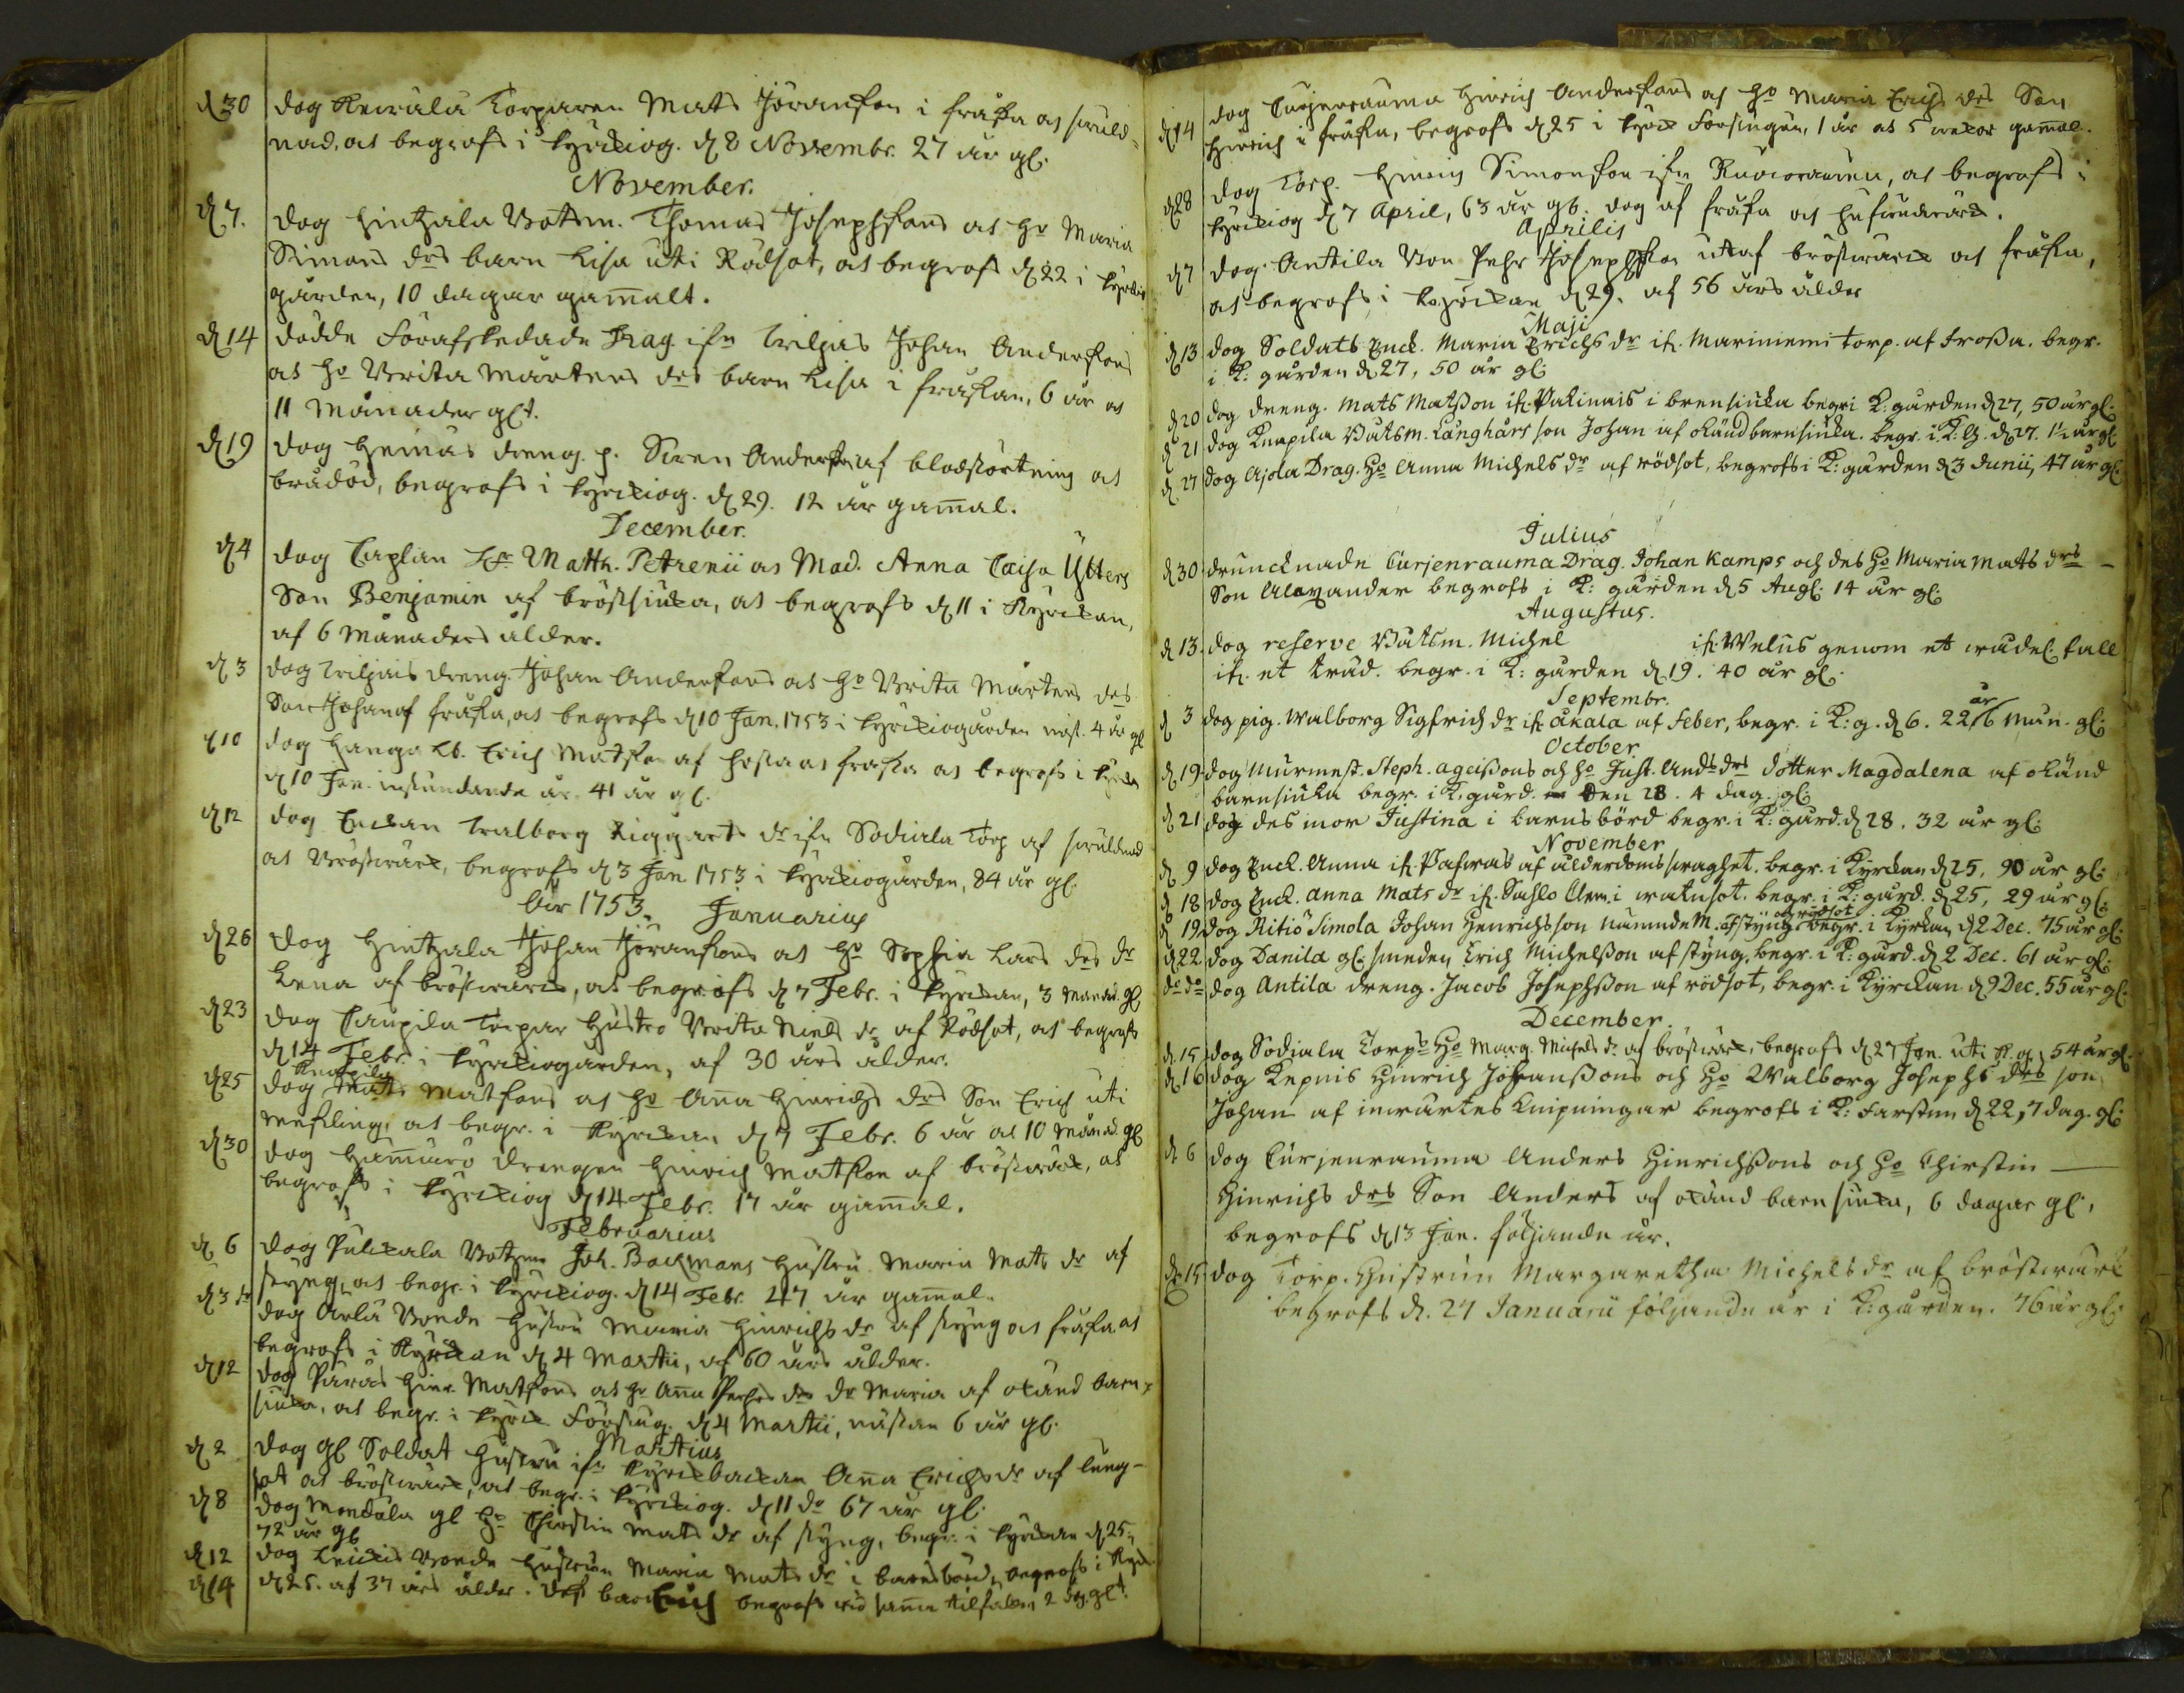 d 30 dog Torparen Mats Jöransson i fråssa och
nad, och begrofs i kyrkiog. d 8 Novembr. 27 år gl.
November.
d 7. dog Hintzala Botsm. Thomas Josephssons och Ho Maria
Simons drs barn Lisa uti Rödsot, och begrofs d 22 i kyrkio
gården, 10 dagar gam̄alt.
d 14 dödde Förafskedade Drag. ifn Wiljais Johan Anderssons
och Ho Brita Mårtens drs barn Lisa i fråssan, 6 år och
11 Månader glt.
d 19 dog dreng. p. Anderss. af blodstörtning och
brådöd, begrofs i kyrkiog. d 29. 12 år gam̄al.
December.
d 4 dog Caplan Hr Matth. Petrenii och Mad. Anna Caisa Ütters
Son Benjamin af bröstsiuka, och begrofs d 11 i Kyrckan,
af 6 Månaders ålder.
d 3 dog Wiljais dreng Johan Anderssons och Ho Brita Mårtens drs
Son Johan af fråssa, och begrofs d 10 Jan. 1753 i kyrkiogården 4 år gl
d 10 dog Erich Matsson af och fråssa och begrofs i
d 10 Jan. instundande år. 41 år gl.
d 12 dog Enckan Walborg dr ifn Sodiala Torp af
och Bröstwärck, begrofs d 3 Jan 1753 i kyrkiogården, 84 år gl.
År 1753. Januarius
d 26 dog Hintzala Johan Jöranssons och Ho Sophia Lars drs dr
Lena af bröstwärck, och begrofs d 7 Febr. i kyrckan, 3 Månad. gl
d 23 dog Caupila Torpar Hustro Brita Niels dr af Rödsot, och begrofs
d 14 Febr. i kyrkiogården, af 30 års ålder.
Knapila
d 25 dog Mats Matssons och Ho Anna Hinrichs drs Son Erich uti
Meslling, och begr. i Kyrckan d 7 Febr. 6 år och 10 Månad. gl
d 30 dog drengen Hinrich Matsson af bröstwärck, och
begrofs i kyrkiog d 14 Febr. 17 år gam̄al.
Februarius
d 6 dog Pulckala Botzm Joh. Backmans Hustru Maria Mats dr af
styng, och begr. i kyrkiog. d 14 Febr. 47 år gam̄al.
d 3 dog Ärlä Bonde Hustru Maria Hinrichs dr af styng och fråssa och
begrofs i Kyrckan d 4 Martii, af 60 års ålder.
d 12 dog Paras Hinr. Matssons och Ho Anna drs dr Maria af okänd barn-
siuka, och begr. i Förstug. d 4 Martii, nästan 6 år gl.
Martius
d 2 dog gl Soldat Hustru ifn Kyrckbackan Anna Erichs dr af lung-
sot och bröstwärck, och begr. i kyrkiog. d 11 do 67 år gl.
d 8 dog Mendala gl Ho Chirstin Mats dr af styng, begr. i kyrckan d 25.
72 år gl
d 12 dog Bonde Hustrun Maria Mats dr i barnsbörd, begrofs i Kyrk
d 14 d 25. af 37 års ålder. Dess barn Erich begrofs wid sam̄a tilfälle, 2 dag. glt.
d 14 dog Curjenrauma Hinrich Anderssons och Ho Maria Erichs drs Son
Hinrich i fråssa, begrofs d 25 i kyrck Förstugun, 1 år och 5 weckor gam̄al.
d 28 dog Torp. Hinrich Simonsson ifn, och begrofs i
kyrkiog d 7 April, 63 år gl. dog af fråssa och hufwudwärck.
Aprilis
d 7 dog Antila Bon. Pehr Josephsson utaf bröstwärck och fråssa,
och begrofs i kyrckan d 29. af 56 års ålder
Maji
d 13 dog Soldats Enck. Maria Erichs dr if. Mariniemi torp. af frossa. begr.
i K: gården d 27, 50 år gl:
d 20 dog dreng. Mats Matsson if. Pakinais i brensiuka begr. i K: gården d 27, 50 år gl:
d 21 dog Knapila Båtsm. Långhårs son Johan af okänd barnsiuka. begr. i K: G. d 27. 1½ år gl
d 27 dog Ajola Drag. Ho Anna Michels dr af rödsot, begrofs i K: gården d 3 Junii, 47 år gl:
Julius
d 30 druncknade Curjenrauma Drag. Johan Kamps och des Ho Maria Mats drs
Son Alexander begrofs i K: gården d 5 Aug: 14 år gl:
Augustus.
d 13. dog reserve Båtsm. Michel if. Welus genom et wådel: fall
if. et träd. begr. i K: gården d 19. 40 år gl:
Septembr.
d 3 dog pig. Walborg Sigfrich dr if. Åkala af feber, begr. i K: g. d 6. 22 år 6 mån. gl:
October
d 19 dog Murmest. Steph. Agrissons och Ho Just. Ands drs dotter Magdalena af okänd
barnsiuka begr. i K. gård. den 28. 4 dag. gl:
d 21 dog des mor Justina i barnsbörd begr. i K: gård. d 28. 32 år gl:
November
d 9 dog Enck. Anna if. af ålderdoms swaghet. begr. i Kyrckan d 25, 90 år gl:
d 18 dog Enck. Anna Mats dr if. i watusot. begr. i K: gård. d 25, 29 år gl:
d 19 dog Ritiö Simola Johan Henrichsson nämnde M. af styng och rödsot begr. i Kyrkan d 2 Dec. 75 år gl:
d 22 dog Danila gl: smeden Erich Michelsson af styng. begr. i K: gård. d 2 Dec. 61 år gl:
do do dog Antila dreng. Jacob Josephsson af rödsot, begr. i Kyrckan d 9 Dec. 55 år gl:
December.
d 15 dog Sodiala Torps Ho Marg. Michels dr af bröstwärck, begrofs d 27 Jan. uti K. g. 54 år gl.
d 16 dog Kepnis Hinrich Johanssons och Ho Walborg Josephs drs son
Johan af inwärtes knipningar begrofs i K: Farstun d 22, 7 dag. gl:
d 6 dog Curjenrauma Anders Hinrichssons och Ho Chirstin
Hinrichs drs Son Anders af okänd barnsiuka, 6 dagar gl,
begrofs d 13 Jan. följande år.
d 15 dog Torp. Hustrun Margaretha Michels dr af bröstwärck
begrofs d. 27 Januarii följande år i K: gården. 76 år gl: